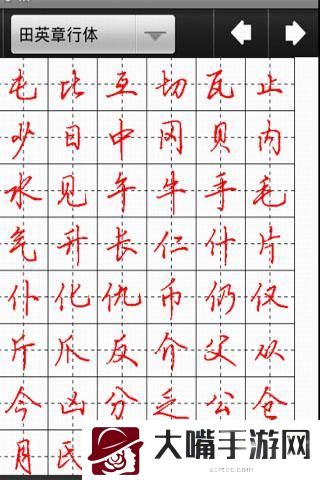 田英章行体
屯比互切瓦止
少日中冈贝内
水见午牛手毛
气升长仁什片
仆化仇币仍仅
斤爪反介父从
今凶分乏公仓
月氏
大嘴手游网